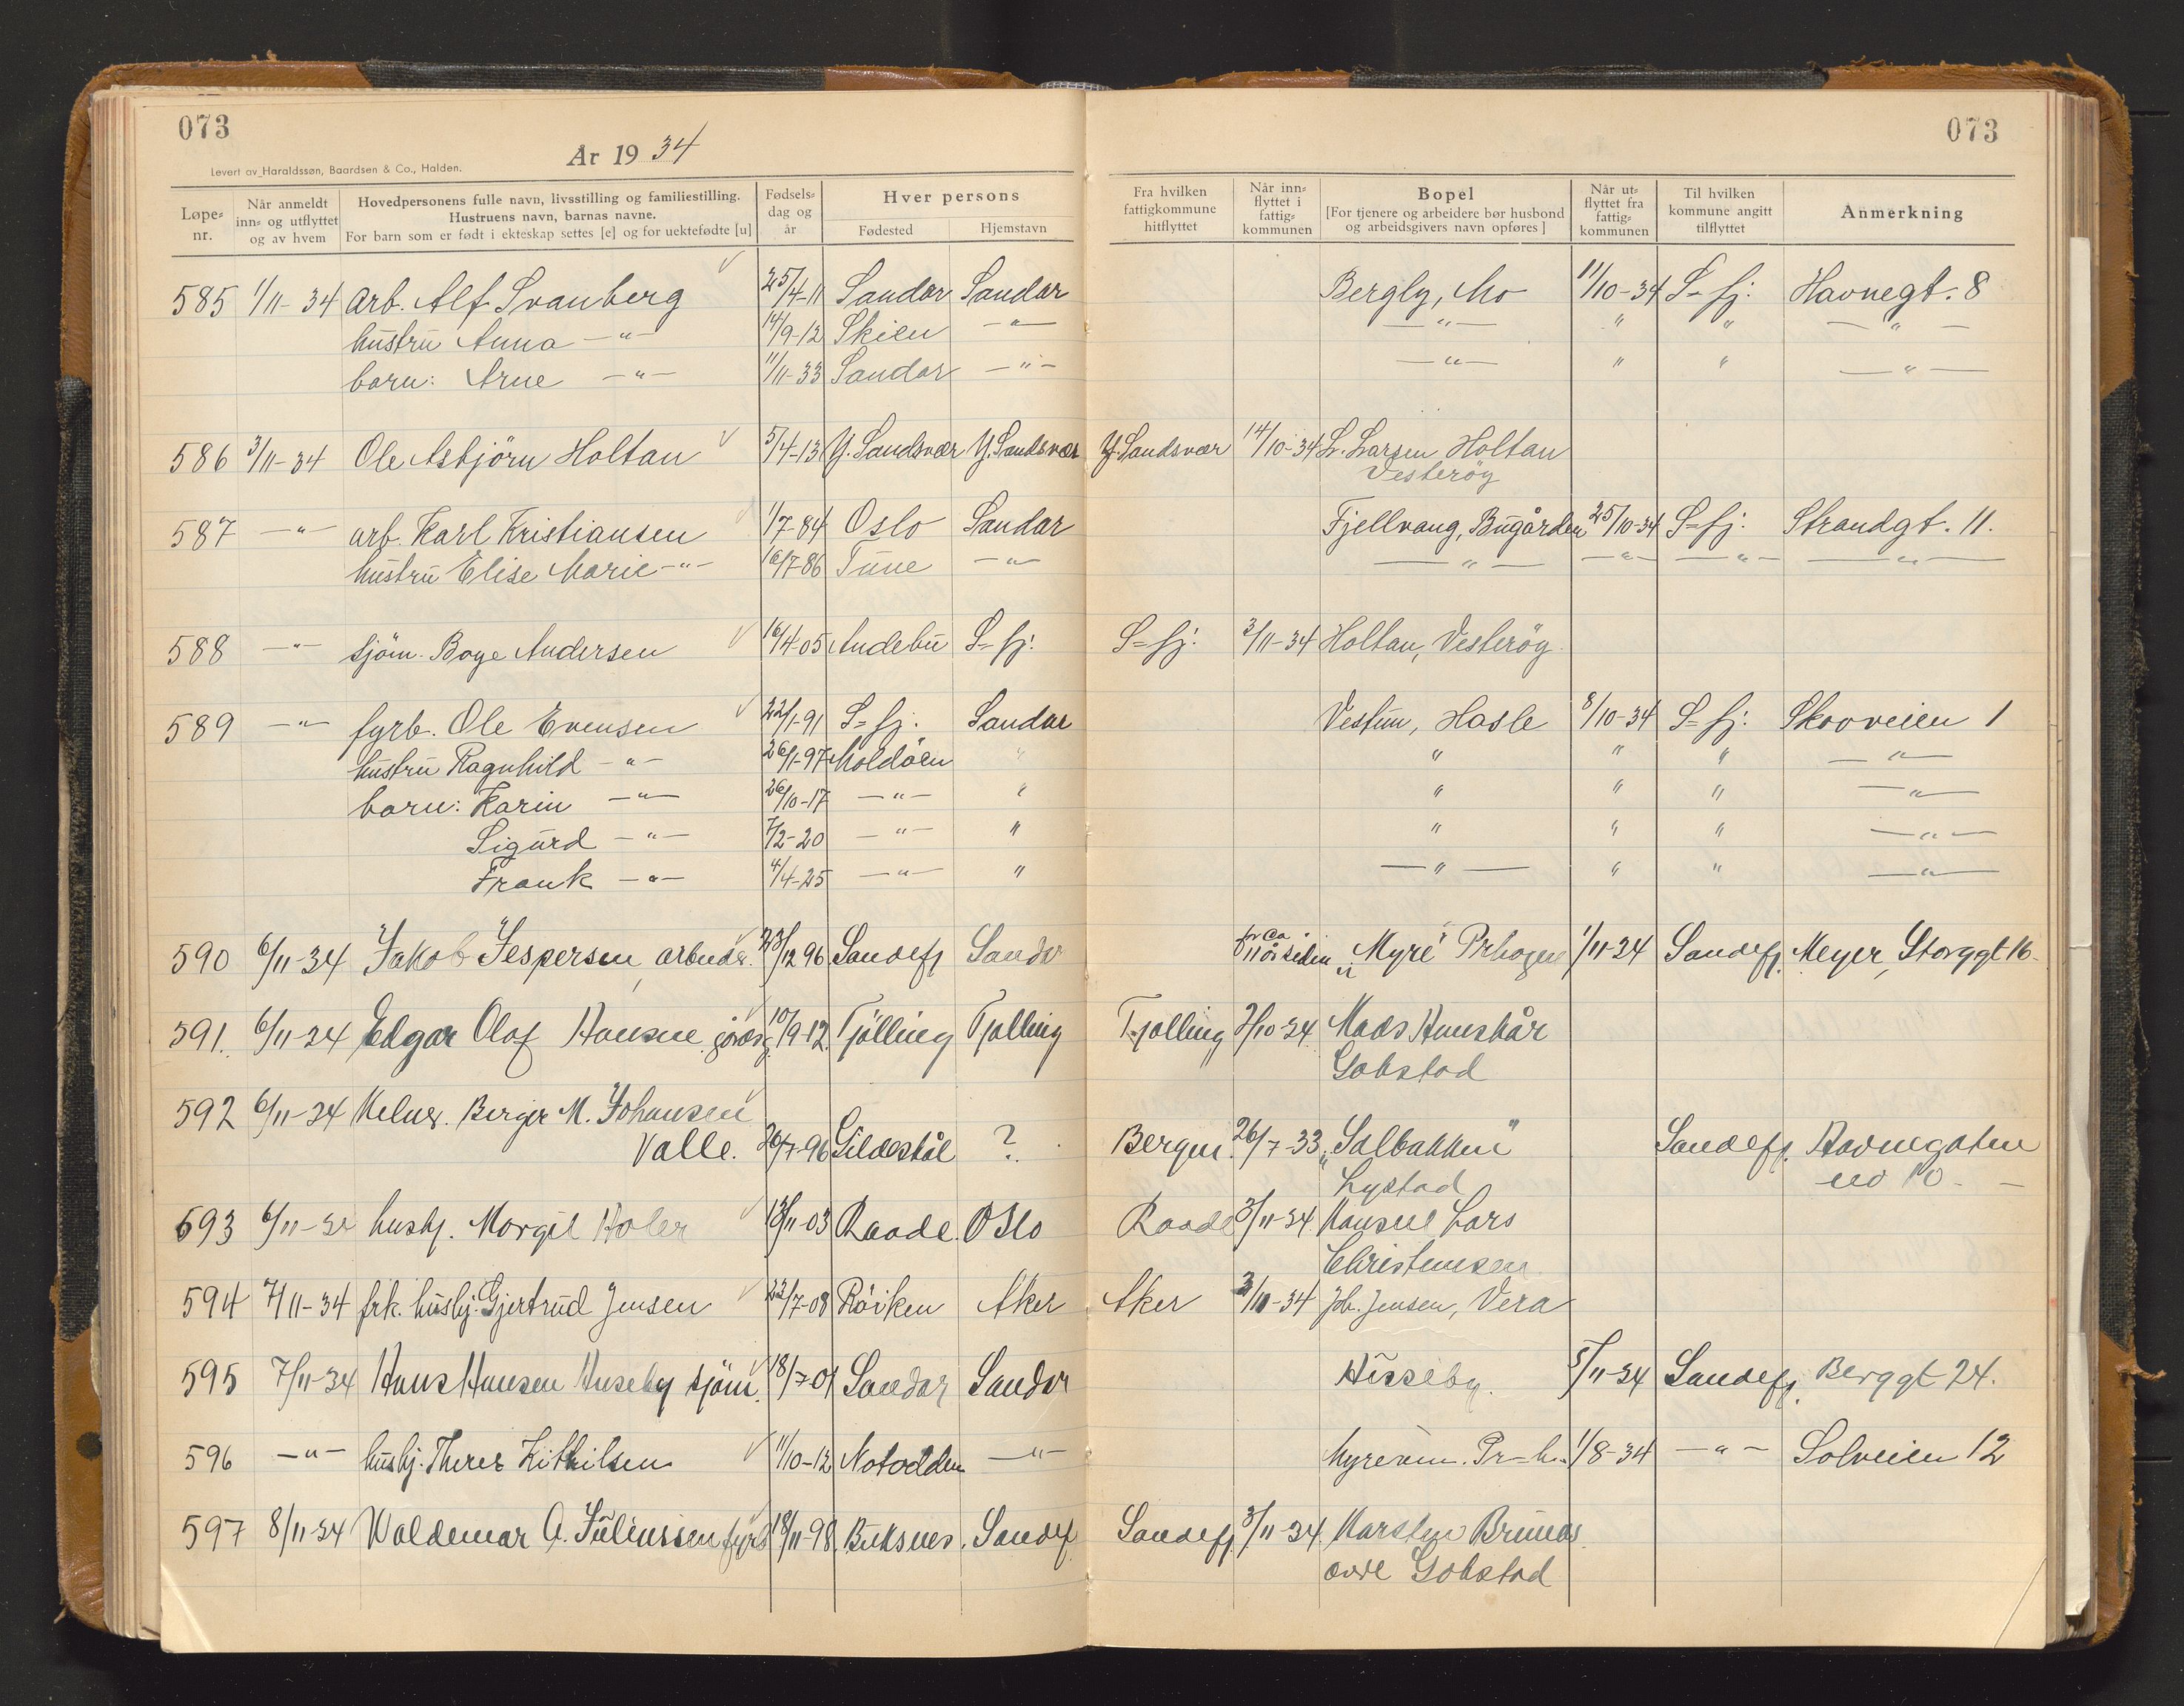 073
År 1934
Levert av Haraldssøn, Baardsen & Co., Halden.
Løpe-nr.
Når anmeldt inn- og utflyttet og av hvem
Hovedpersonens fulle navn, livsstilling og familiestilling.
Hustruens navn, barnas navne.
For barn som er født i ekteskap settes [e] og for uektefødte [u]
Fødsels-dag og år
Hver persons
Fødested
Hjemstavn
073
Fra hvilken fattigkommune hitflyttet
Når inn-flyttet i fattig-kommunen
Bopel
[For tjenere og arbeidere bør husbond og arbeidsgivers navn opføres]
Når ut-flyttet fra fattig-kommunen
Til hvilken kommune angitt tilflyttet
Anmerkning
585 1/11-34 Arb. Alf Svanberg 25/4-11 Sandar Sandar Bergly, Mo 11/10-34 S-fj: Havnegt. 8
hustru Anna -"- 14/9-12 Skien -"- -"- " " -"-
barn: Arne -"- 11/11-33 Sandar -"- -"- " " -"-
586 3/11-34 Ole Asbjörn Holtan 5/4-13 Y. Sandsvær Y. Sandsvær Y. Sandsvær 14/10-34 L. Larsen Holtan
Vesteröy
587 -"- arb. Karl Kristiansen 1/7-84 Oslo Sandar Fjellvang, Bugården 25/10-34 S-fj: Strandgt. 11.
hustru Elise Marie -"- 16/7-86 Tune -"- -"- -"- -"- -"-
588 -"- sjöm. Boye Andersen 16/4-05 Andebu S-fj: S-fj: 3/11-34 Holtan, Vesteröy
589 -"- fyrb. Ole Evensen 22/1-91 S-fj. Sandar Vestun, Hasle 8/10-34 S-fj: Skovveien 1
hustru Ragnhild -"- 26/1-97 Moldöen " " " " -"-
barn: Karin -"- 26/10-17 -"- " " " " -"-
Sigurd -"- 7/2-20 -"- " " " " -"-
Frank -"- 4/4-25 -"- " -"- " " -"-
590 6/11-34 Jakob Jespersen, arbeider. 23/12 96 Sandefj Sandar for ca 11 år siden "Myre" Prhogen 1/11-34 Sandefj. Meyer, Storggt 16.
591. 6/11-34 Edgar Olaf Hansen 10/9-12. Tjölling Tjölling Tjölling 2/10-34 Mads
Gokstad
592 6/11-34 Kelner. Birger M. Johansen
Valle. 26/7-96 Gildeskål ? Bergen. 26/7-33 "Solbakken" Sandefj. Havnegaten
Lystad no 10 -
593 6/11-34 hush. Margit Holer 13/11-03 Raade. Oslo Raade 3/11-34 Konsul Lars
Christensen
594 7/11-34 frk. hushj. Gjertrud Jensen 22/7-08 Röiken Aker Aker 3/10-34 Joh. Jensen, Vera
595 7/11-34 Hans Hansen Huseby sjöm. 18/7-01 Sandar Sandar Huseby. 5/11-34 Sandefj. Berggt 24.
596 -"- hushj. Theres Kittilsen 11/10-12 Notodden -"- Myrevin. Pr-h. 1/8-34 -"- Solveien 12
597 8/11-34 Waldemar A. Juliussen fyrb 18/11-98. Buksnes. Sandef Sandefj 3/11-34. Karsten Brunås
övre Gokstad